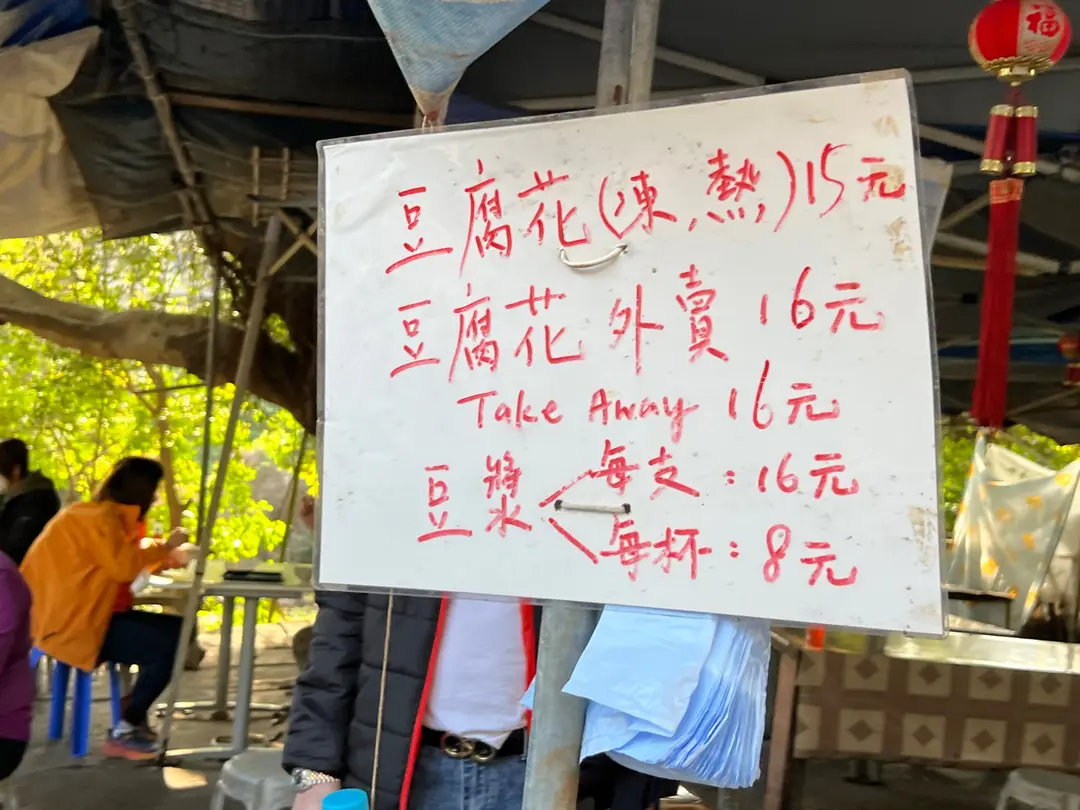 豆腐花(凍,熱)15元
豆腐花 外賣 16元
Take Away 16元
豆漿 每支:16元
每杯:8元
福